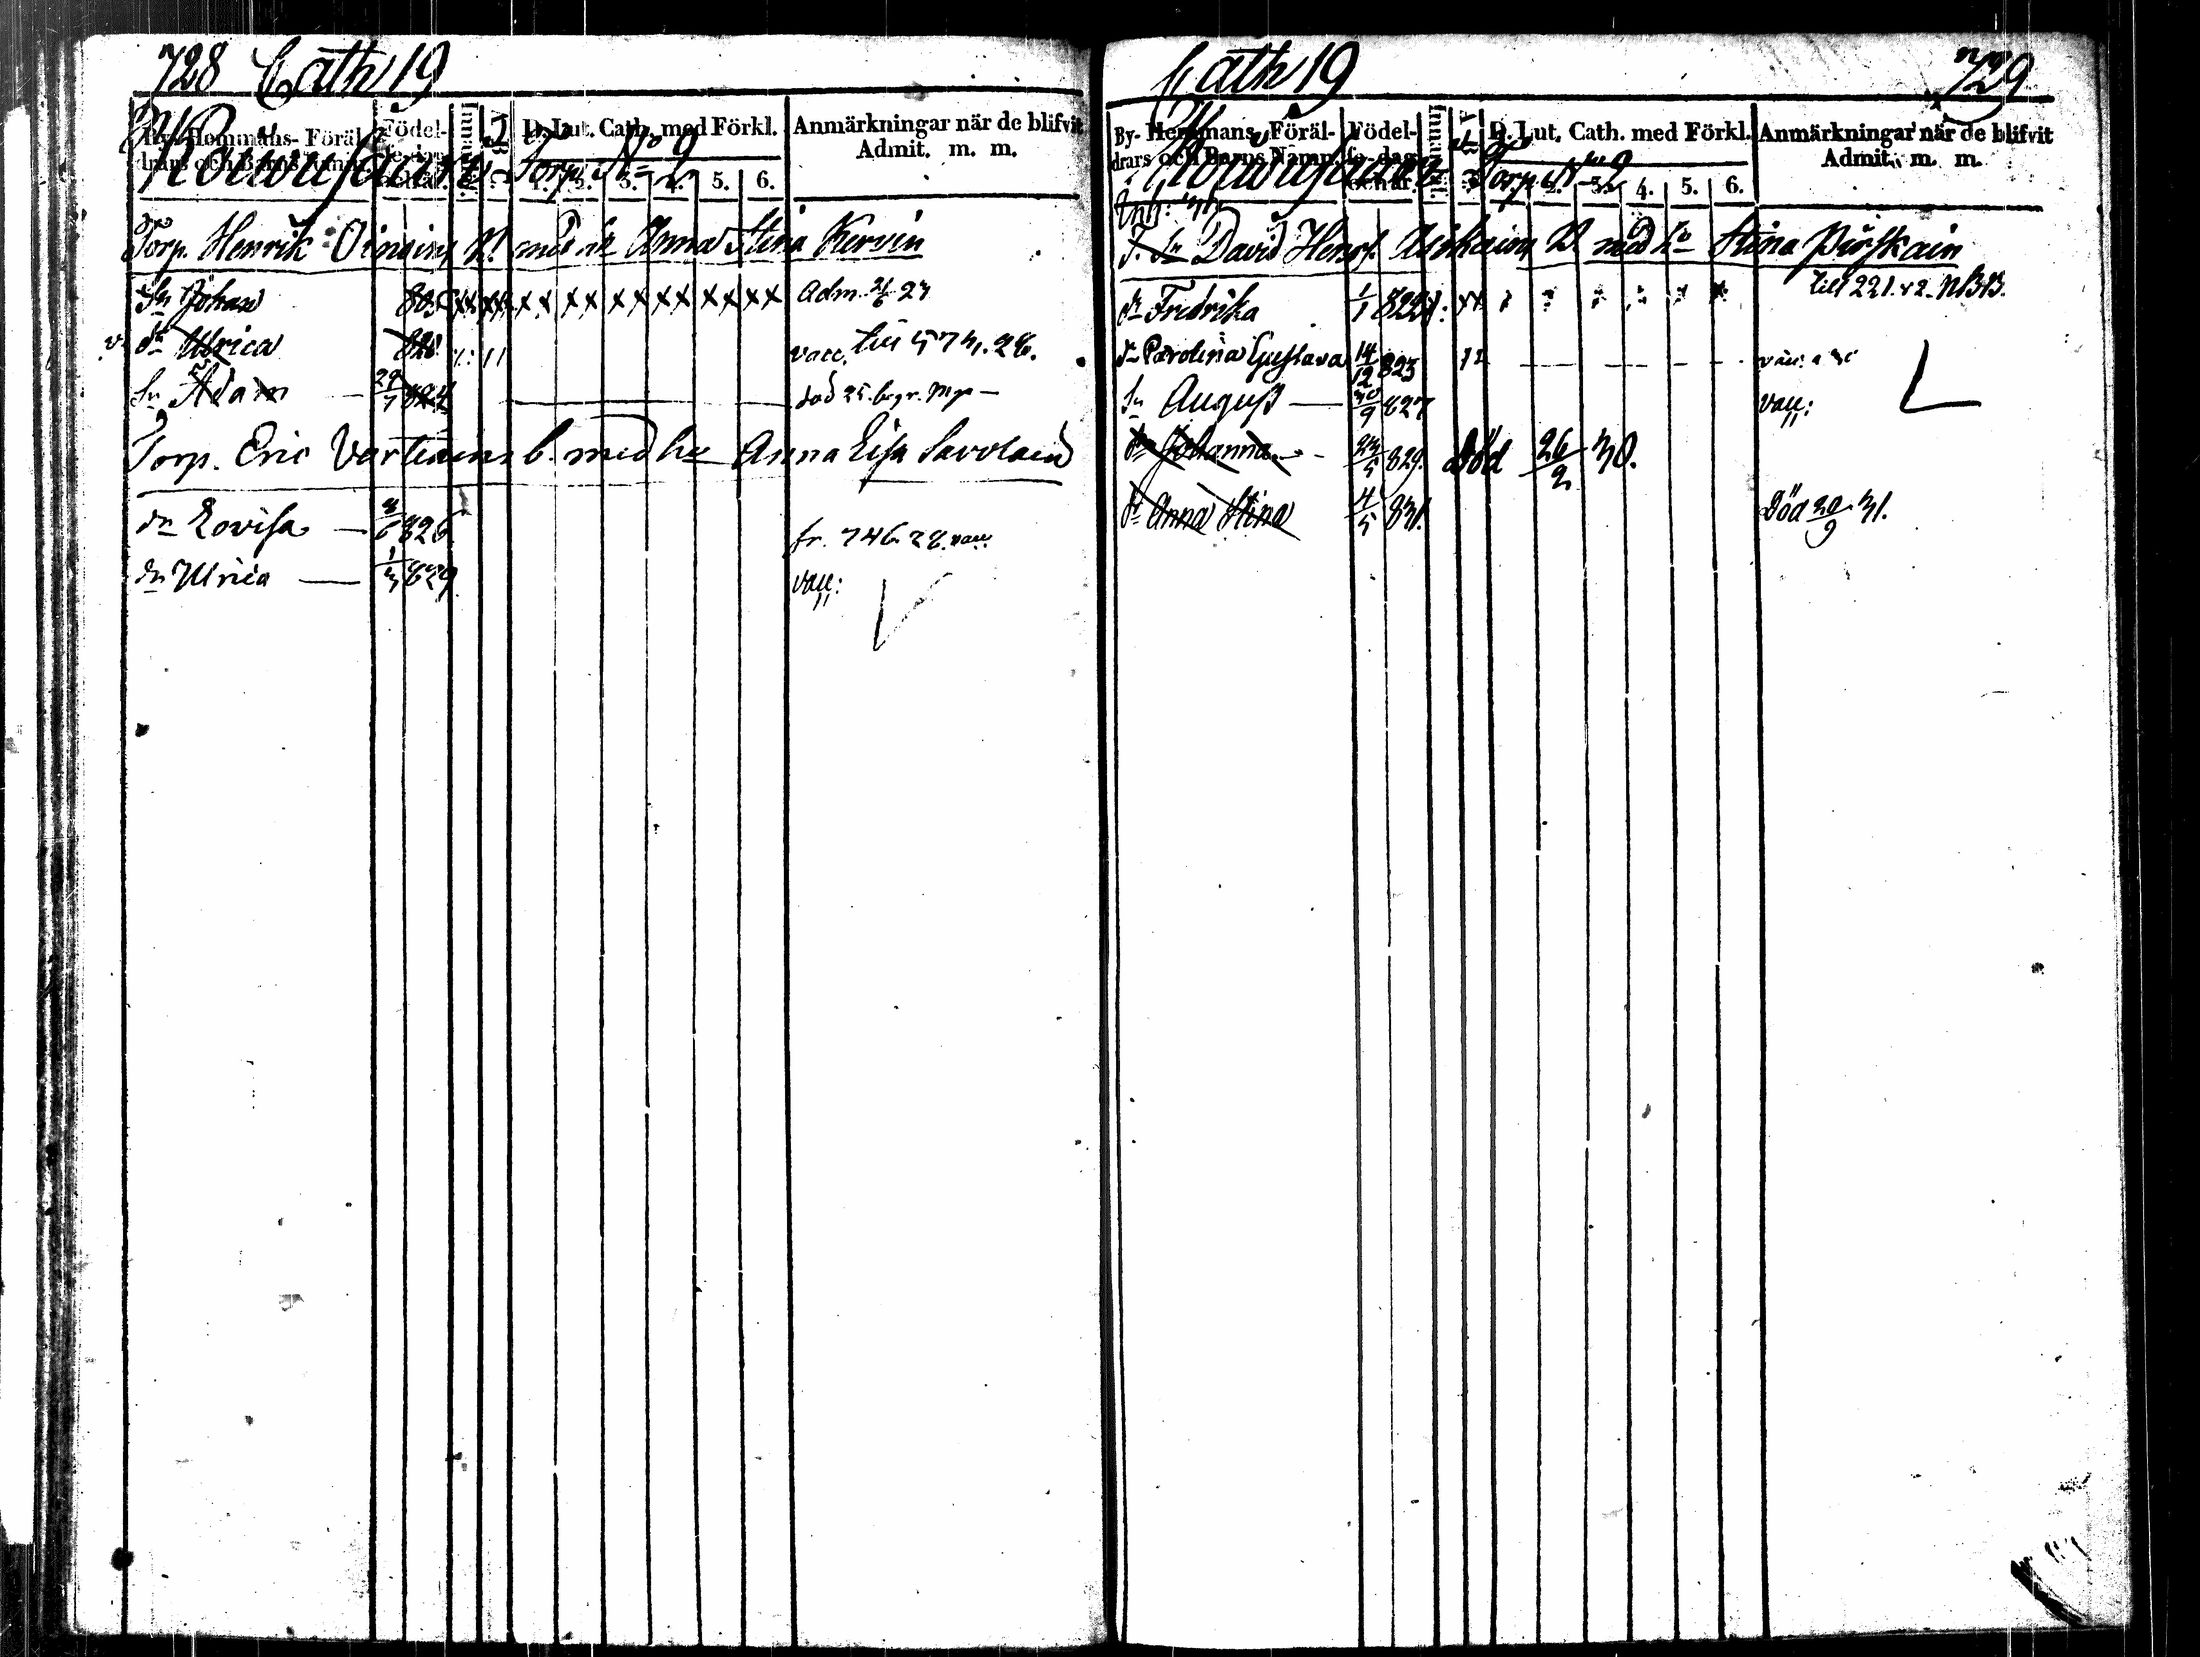 728 Cath 19
By- Hemmans- Föräl-
drars och Barns Namn.
Födel-
D. Lut. Cath. med Förkl.
Anmärkningar när de blifvit
Admit. m. m.
Torp No 2
5. 6.
Torp. Henrik Oinoin med h Anna Stina Kervin
Sn Johan 805 xx xx xx xx xx xx xx xx Adm. 23
dr Ulrica 820 11 vacc. till 573. 28.
Sn Adam — 29/7 824 död 25. begr.
Torp. Eric Vartiain b. med hu Anna Lisa Savolain
dr Lovisa — 3/6 826 fr. 746 28. vacc.
dr Ulrica — 1/3 829 vacc:
Cath 19 729
By- Hemmans- Föräl-
drars och Barns Namn.
Födel-
se-dag
och år.
D. Lut. Cath. med Förkl.
Anmärkningar när de blifvit
Admit. m. m.
Torp No 2
4. 5. 6.
Inh:
David Henr. Asikain med hu Stina Pirskain
till 221. 32. NB B.
dr Fredrika 1/1 822
dr Carolina Gustava 14/12 823 12 — — — — vacc.
Sn August — 30/9 827 vacc:
dr Johanna — 23/5 829. Död 26/2 30.
dr Anna Stina 4/5 831. Död 20/9 31.